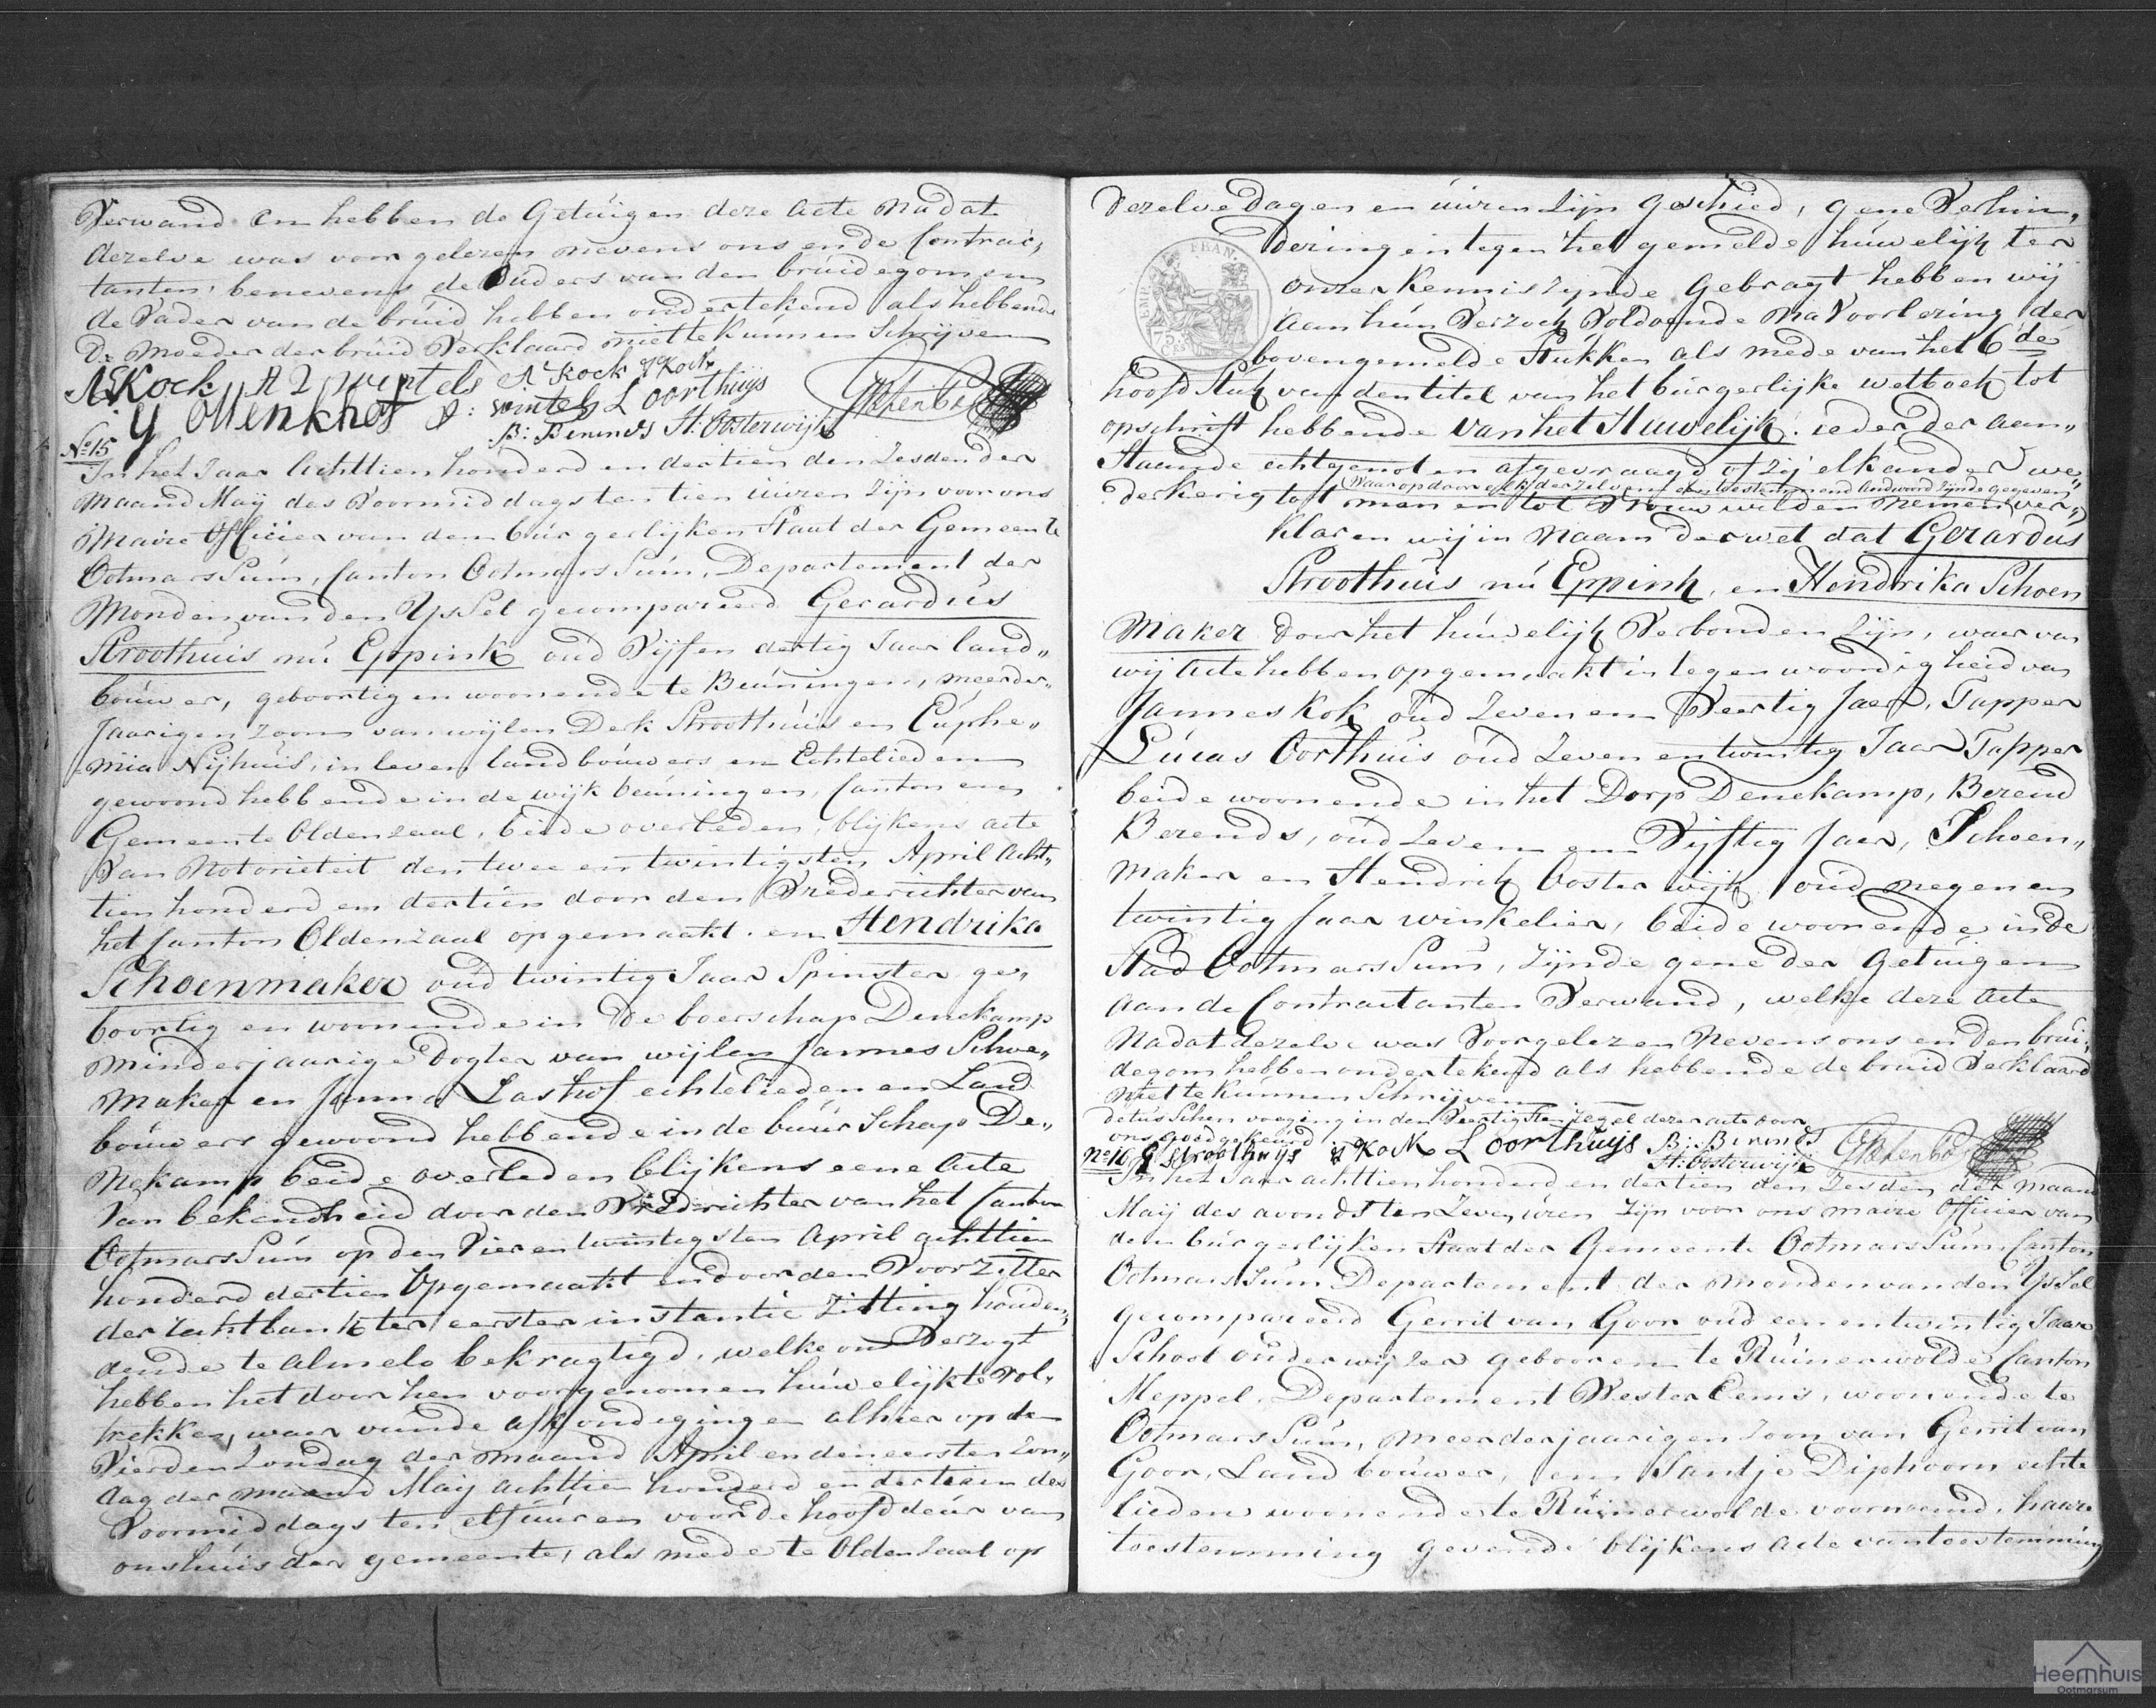 Verwand en hebben de Getúigen deze Acte Nadat
dezelve was voorgelezen nevens ons en de Contrac,
tanten, benevens de Oúders van den brúidegom en
de Vader van de brúid hebben ondertekend als hebbende
De Moeder der brúid Verklaard niet te kúnnen Schrijven
Kock A Kock J Kock
G Ottenkhof L Oorthuijs
B: Berends H: Oosterwijk
No 15
In het Jaar Achttien honderd en dertien den Zesden der
Maand Maij des Voormiddags ten tien úúren Zijn voor ons
Maire Officier van den búrgerlijken Staat der Gemeente
OotmarsSúm, Canton OotmarsSúm, Departement der
Monden van den YsSel gecompareerd Gerardús
Stroothuis nú Eppink oud Vijf en dertig Jaar land„
boúwer, geboortig en woonende te Beúningen, meerder„
Jaarigen Zoon van wijlen Derk Stroothúis en Eúphe„
mia Nijhúis, in leven landboúwers en Echtelieden
gewoond hebbende in de wijk beúningen, Canton en
Gemeente Oldenzaal, beide overleden, blijkens acte
Van Notorieteit den twee en twintigsten April Acht„
tien honderd en dertien door den Vrederichter van
het Canton Oldenzaal opgemaakt. en Hendrika
Schoenmaker oúd twintig Jaar Spinster ge„
boortig en woonende in De boerschap Denekamp
minderjaarige Dogter van wijlen Jannes Schoe„
Maker en Janna Lashof echtelieden en Land
boúwers gewoond hebbende in de búúrSchap De„
Nekamp beide overleden blijkens eene Acte
Van bekendheid door den Vredrichter van het Canton
OotmarsSúm op den Vier en twintigsten April achttien
honderd dertien Opgemaakt en door den Voorzitter
der rechtbank ter eerster instantie Zitting hoúden„
dende te Almelo bekragtigd, welke ons Verzogt
hebben het door hen voorgenomen húwelijk te Vol„
trekken, waer van de afkondigingen alhier op de
Vierden Zondag der maand April en den eersten Zon„
dag der maand Maij achttien honderd en dertien des
Voormiddags ten elf úúren voor de hoofddeúr van
ons húis der gemeente, als mede te Oldenzaal op
Dezelve dagen en úúren Zijn geschied, gene Verhin„
dering en tegen het gemelde húwelijk ter
onzer Kennis zijnde gebragt hebben wij
Aan hún Verzoek Voldoende Na Voorlezing der
bovengemelde Stukken als mede van het 6de
hoofdStuk van den titel van het búrgerlijke wetboek tot
opschrift hebbende van het Huwelijk. ieder der aan„
Staande echtgenoten afgevraagd of Zij elkander we„
Waar op door elk derzelven een toestemmend Andwoord Zijnde gegeven
derkerig tot man en tot Vrouw wilden Nemen, ver„
klaren wij in Naam Der wet dat Gerardús
Stroothuis nú Eppink, en Hendrika Schoen
Maker Door het húwelijk Verbonden Zijn, waer van
wij Acte hebben opgemaakt in tegenwoordigheid van
Jannes Kok oúd Zeven en Veertig Jaer, Tapper
Lúcas Oorthúis oúd Zeven en twintig Jaar Tapper
beide woonende in het Dorp Denekamp, Berend
Berends, oúd Zeven en Vijftig Jaer, Schoen„
maker en Hendrik Oosterwijk oúd negen en
twintig Jaar winkelier, beide woonende in de
Stad OotmarsSúm, Zijnde gene der Getúigen
aan de Contractanten Verwand, welke deze Acte
Nadat dezelve was Voorgelezen Nevens ons en Den brúi„
degom hebben ondertekend als hebbende de brúid Verklaard
Niet te kúnnen Schrijven
de túsSchen voeging in den Veertigsten regel dezer acte door
ons goedgekeurd
G Stroothuijs J Kock L Oorthúijs B: Berends
H: Oosterwijk
No 16
In het Jaar achttien honderd en dertien den Zesden der maand
Maij des avonds ten Zeven úren Zijn voor ons maire Officier van
den búrgerlijken Staat der Gemeente OotmarsSúm Canton
OotmarsSúm Departement der Monden van den YsSel
gecompareerd Gerrit van Goor oúd een en twintig Jaar
School onderwijzer gebooren te Rúinerwolde Canton
Meppel, Departement Wester Eems, woonende te
OotmarsSúm, meerderjaarigen Zoon van Gerrit van
Goor, Landboúwer, en Jantje Diphoorn echte
lieden woonende te Rúinerwolde voornoemd, haare
toestemming gevende blijkens acte van toestemming
EMPIRE FRAN.
75
Heemhuis
Ootmarsum